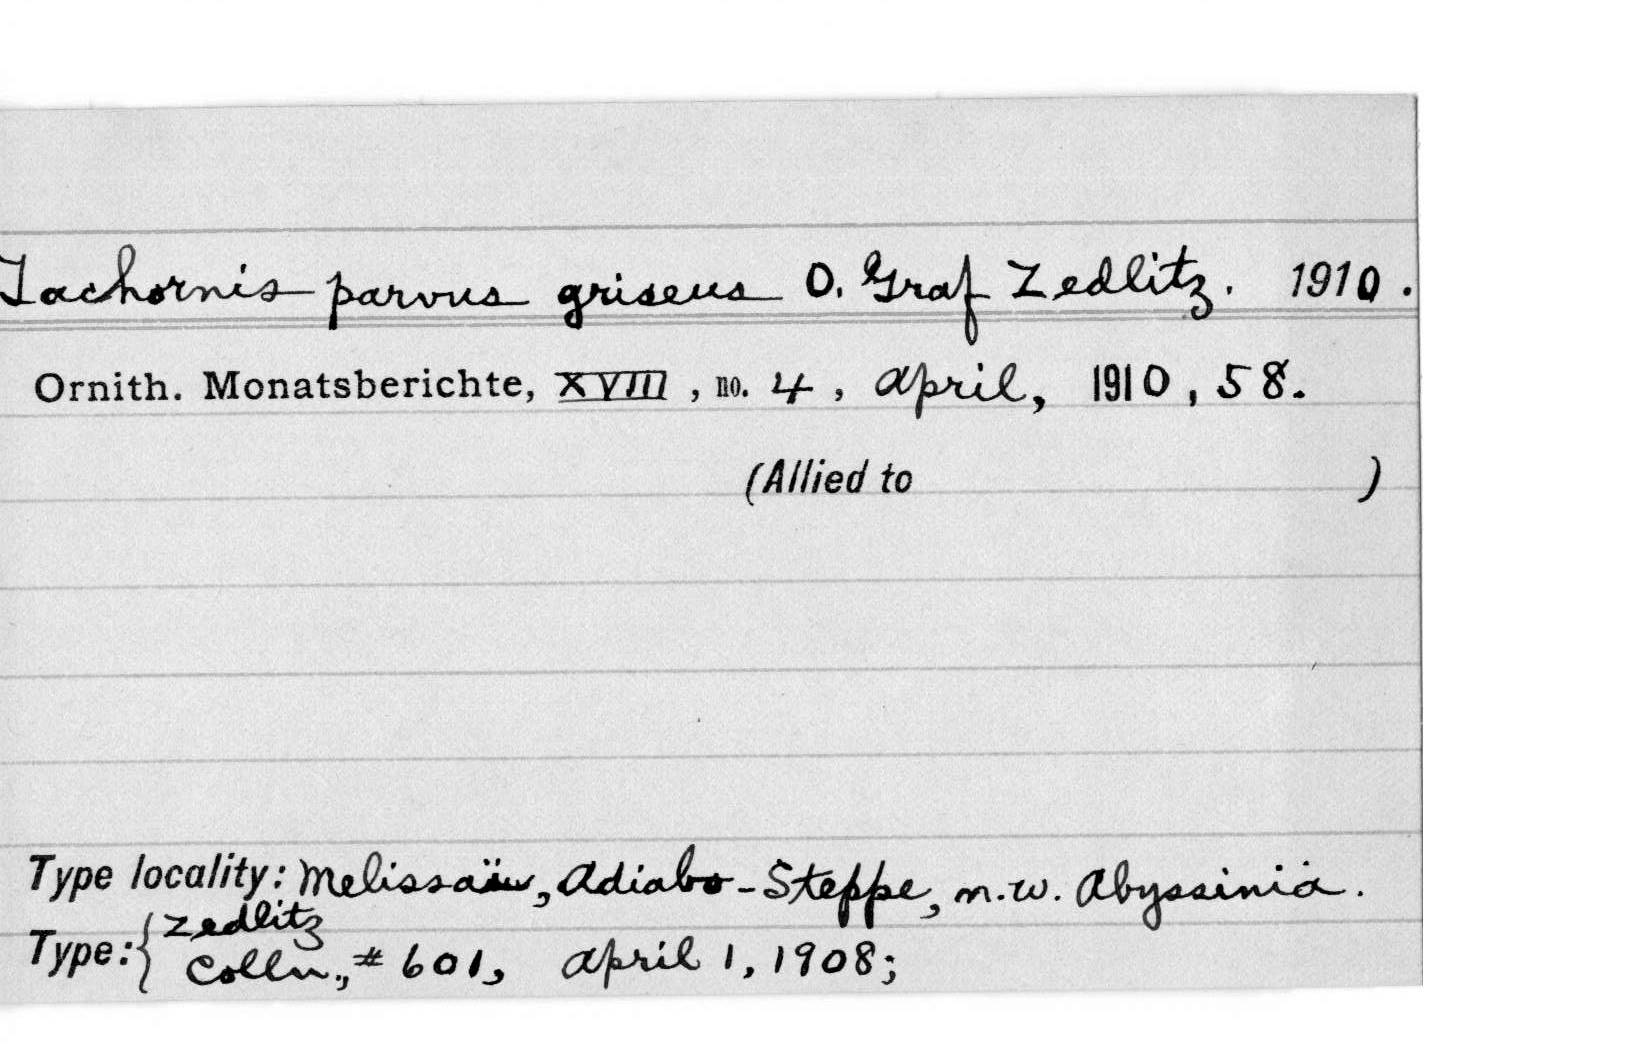 Tachornis parvus griseus O. Graf Zedlitz. 1910.
Ornith. Monatsberichte, XVIII, no. 4, April, 1910, 58.
(Allied to )
Type locality: Adiabo-Steppe, n.w. Abyssinia.
Type: { Zedlitz
Colln., # 601, April 1, 1908;